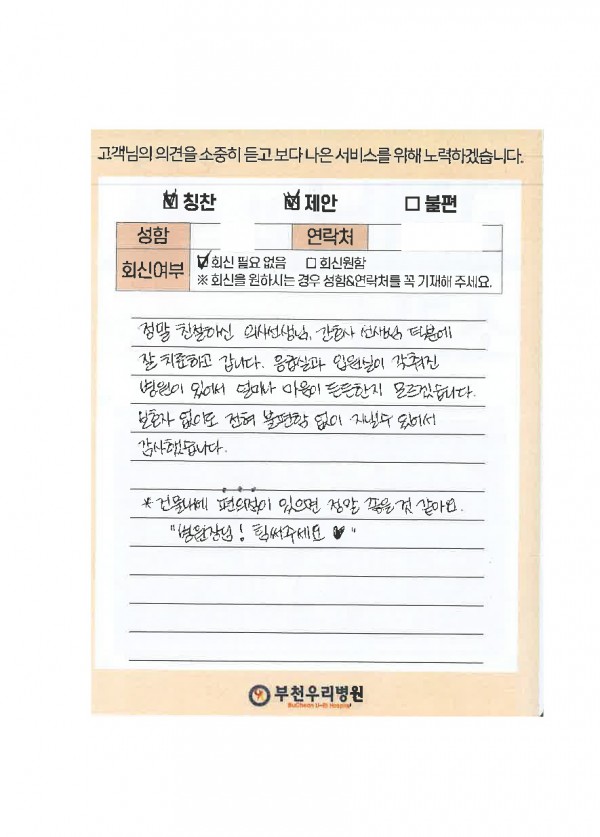 고객님의 의견을 소중히 듣고 보다 나은 서비스를 위해 노력하겠습니다.
☑ 칭찬 ☑ 제안 ☐ 불편
성함 연락처
회신여부 ☑ 회신 필요 없음 ☐ 회신원함
※ 회신을 원하시는 경우 성함&연락처를 꼭 기재해 주세요.
정말 친절하신 의사선생님, 간호사 선생님 덕분에
잘 치료하고 갑니다. 응급실과 입원실이 갖춰진
병원이 있어서 얼마나 마음이 든든한지 모르겠습니다.
보호자 없이도 전혀 불편함 없이 지낼수 있어서
감사했습니다.
* 건물내에 편의점이 있으면 정말 좋을것 같아요.
"병원장님! 힘써주세요 ♥"
부천우리병원
BuCheon U-Ri Hospital